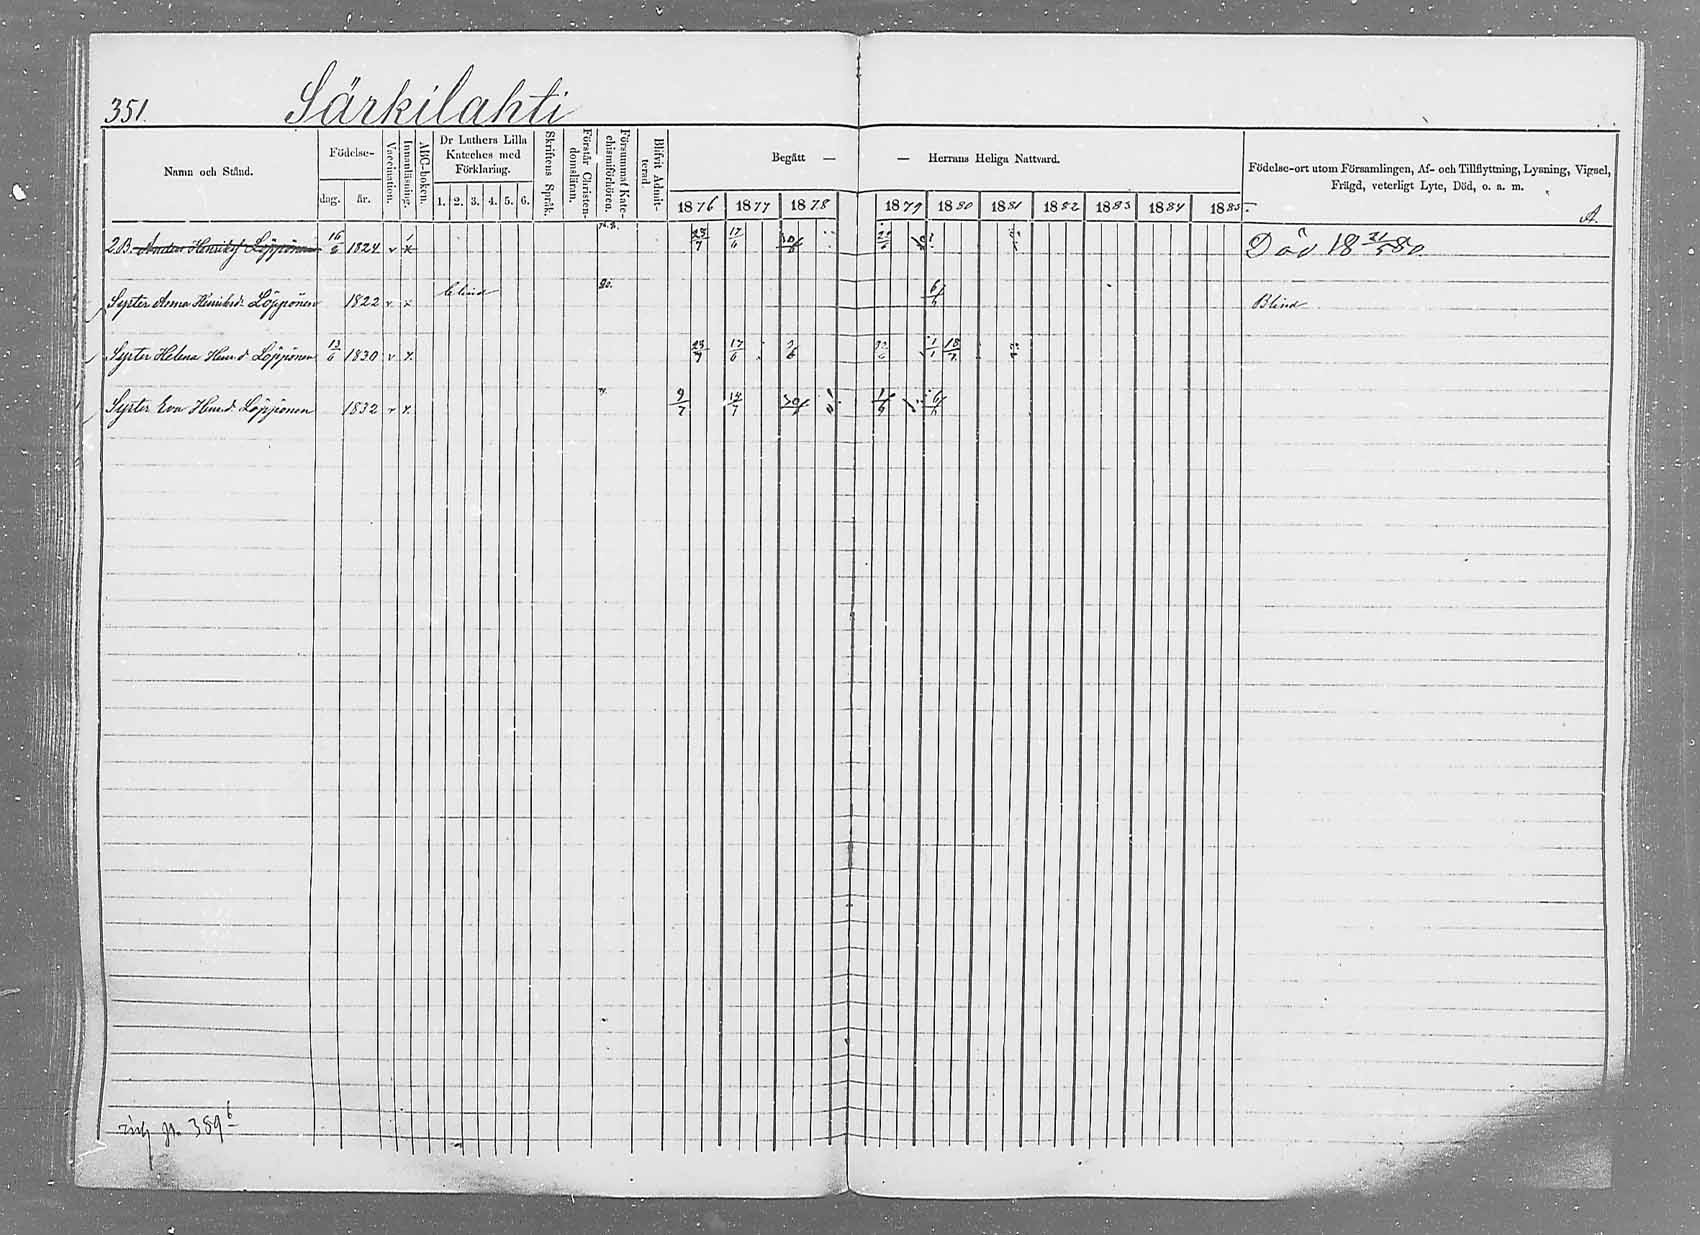 351.
Särkilahti
Namn och Stånd.
Födelse-
dag.
år.
Vaccination.
Innanläsning.
ABC-boken.
Dr Luthers Lilla
Kateches med
Förklaring.
1. 2. 3. 4. 5. 6.
Skriftens Språk.
Förstår Christen-
domsläran.
Försummat Kate-
chismiförhören.
Blifvit Admit-
terad.
Begått — — Herrans Heliga Nattvard.
1876 1877 1878 1879 1880 1881 1882 1883 1884 1885
Födelse-ort utom Församlingen, Af- och Tillflyttning, Lysning, Vigsel,
Frägd, veterligt Lyte, Död, o. a. m.
A.
2.B. Anders Henriksf Löppönen 16/6 1824 v x 23/7 17/6 Död 18 /5 80.
Syster Anna Henriksd. Löppönen 1822 v x blind 80. 6/6 Blind
Syster Helena Henr.d Löppönen 13/6 1830 v x 23/7 17/6 1/1 18/7
Syster Eva Henr.d. Löppönen 1832 v x 9/7 14/7 6/6
389